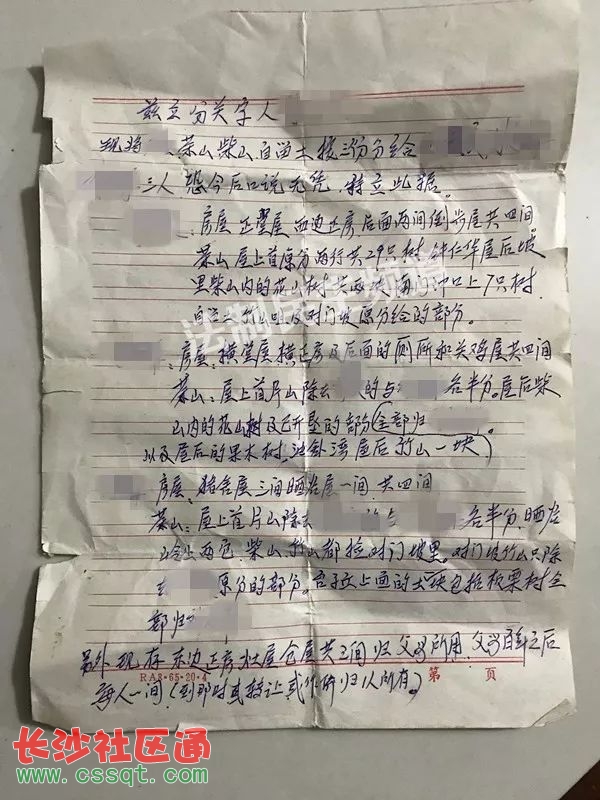 兹立分关字人
现将 茶山柴山自留土按三份分给
三人 恐今后口说无凭，特立此据。
房屋 正堂屋 西边正房后面两间倒步屋共四间
茶山 屋上首原分两行共29只树 华屋后坡
里柴山内的花山树 口上7只树
对门坡原分给的部分。
房屋: 横堂屋、横正房及后面的厕所和关鸡屋共四间
茶山、屋上首片山除去 的与 各半分。屋后柴
山内的花山树及已开垦的部份全部归
以及屋后的果木树, 湾屋后竹山一块
房屋、猪舍屋三间晒谷屋一间 共四间
茶山: 屋上首片山除去 各半分、晒谷
两 柴山竹山都 对门坡里、对门坡竹山只除
去 原分的部分。 上面的 块包括板栗树全
部归
另外 现存东边正房 屋仓屋共三间 归父母所用、父母百年之后
每人一间（到那时或转让或作价归 人所有。）
RA8·65·20·4 第 页
法
长沙社区通
www.cssqt.com